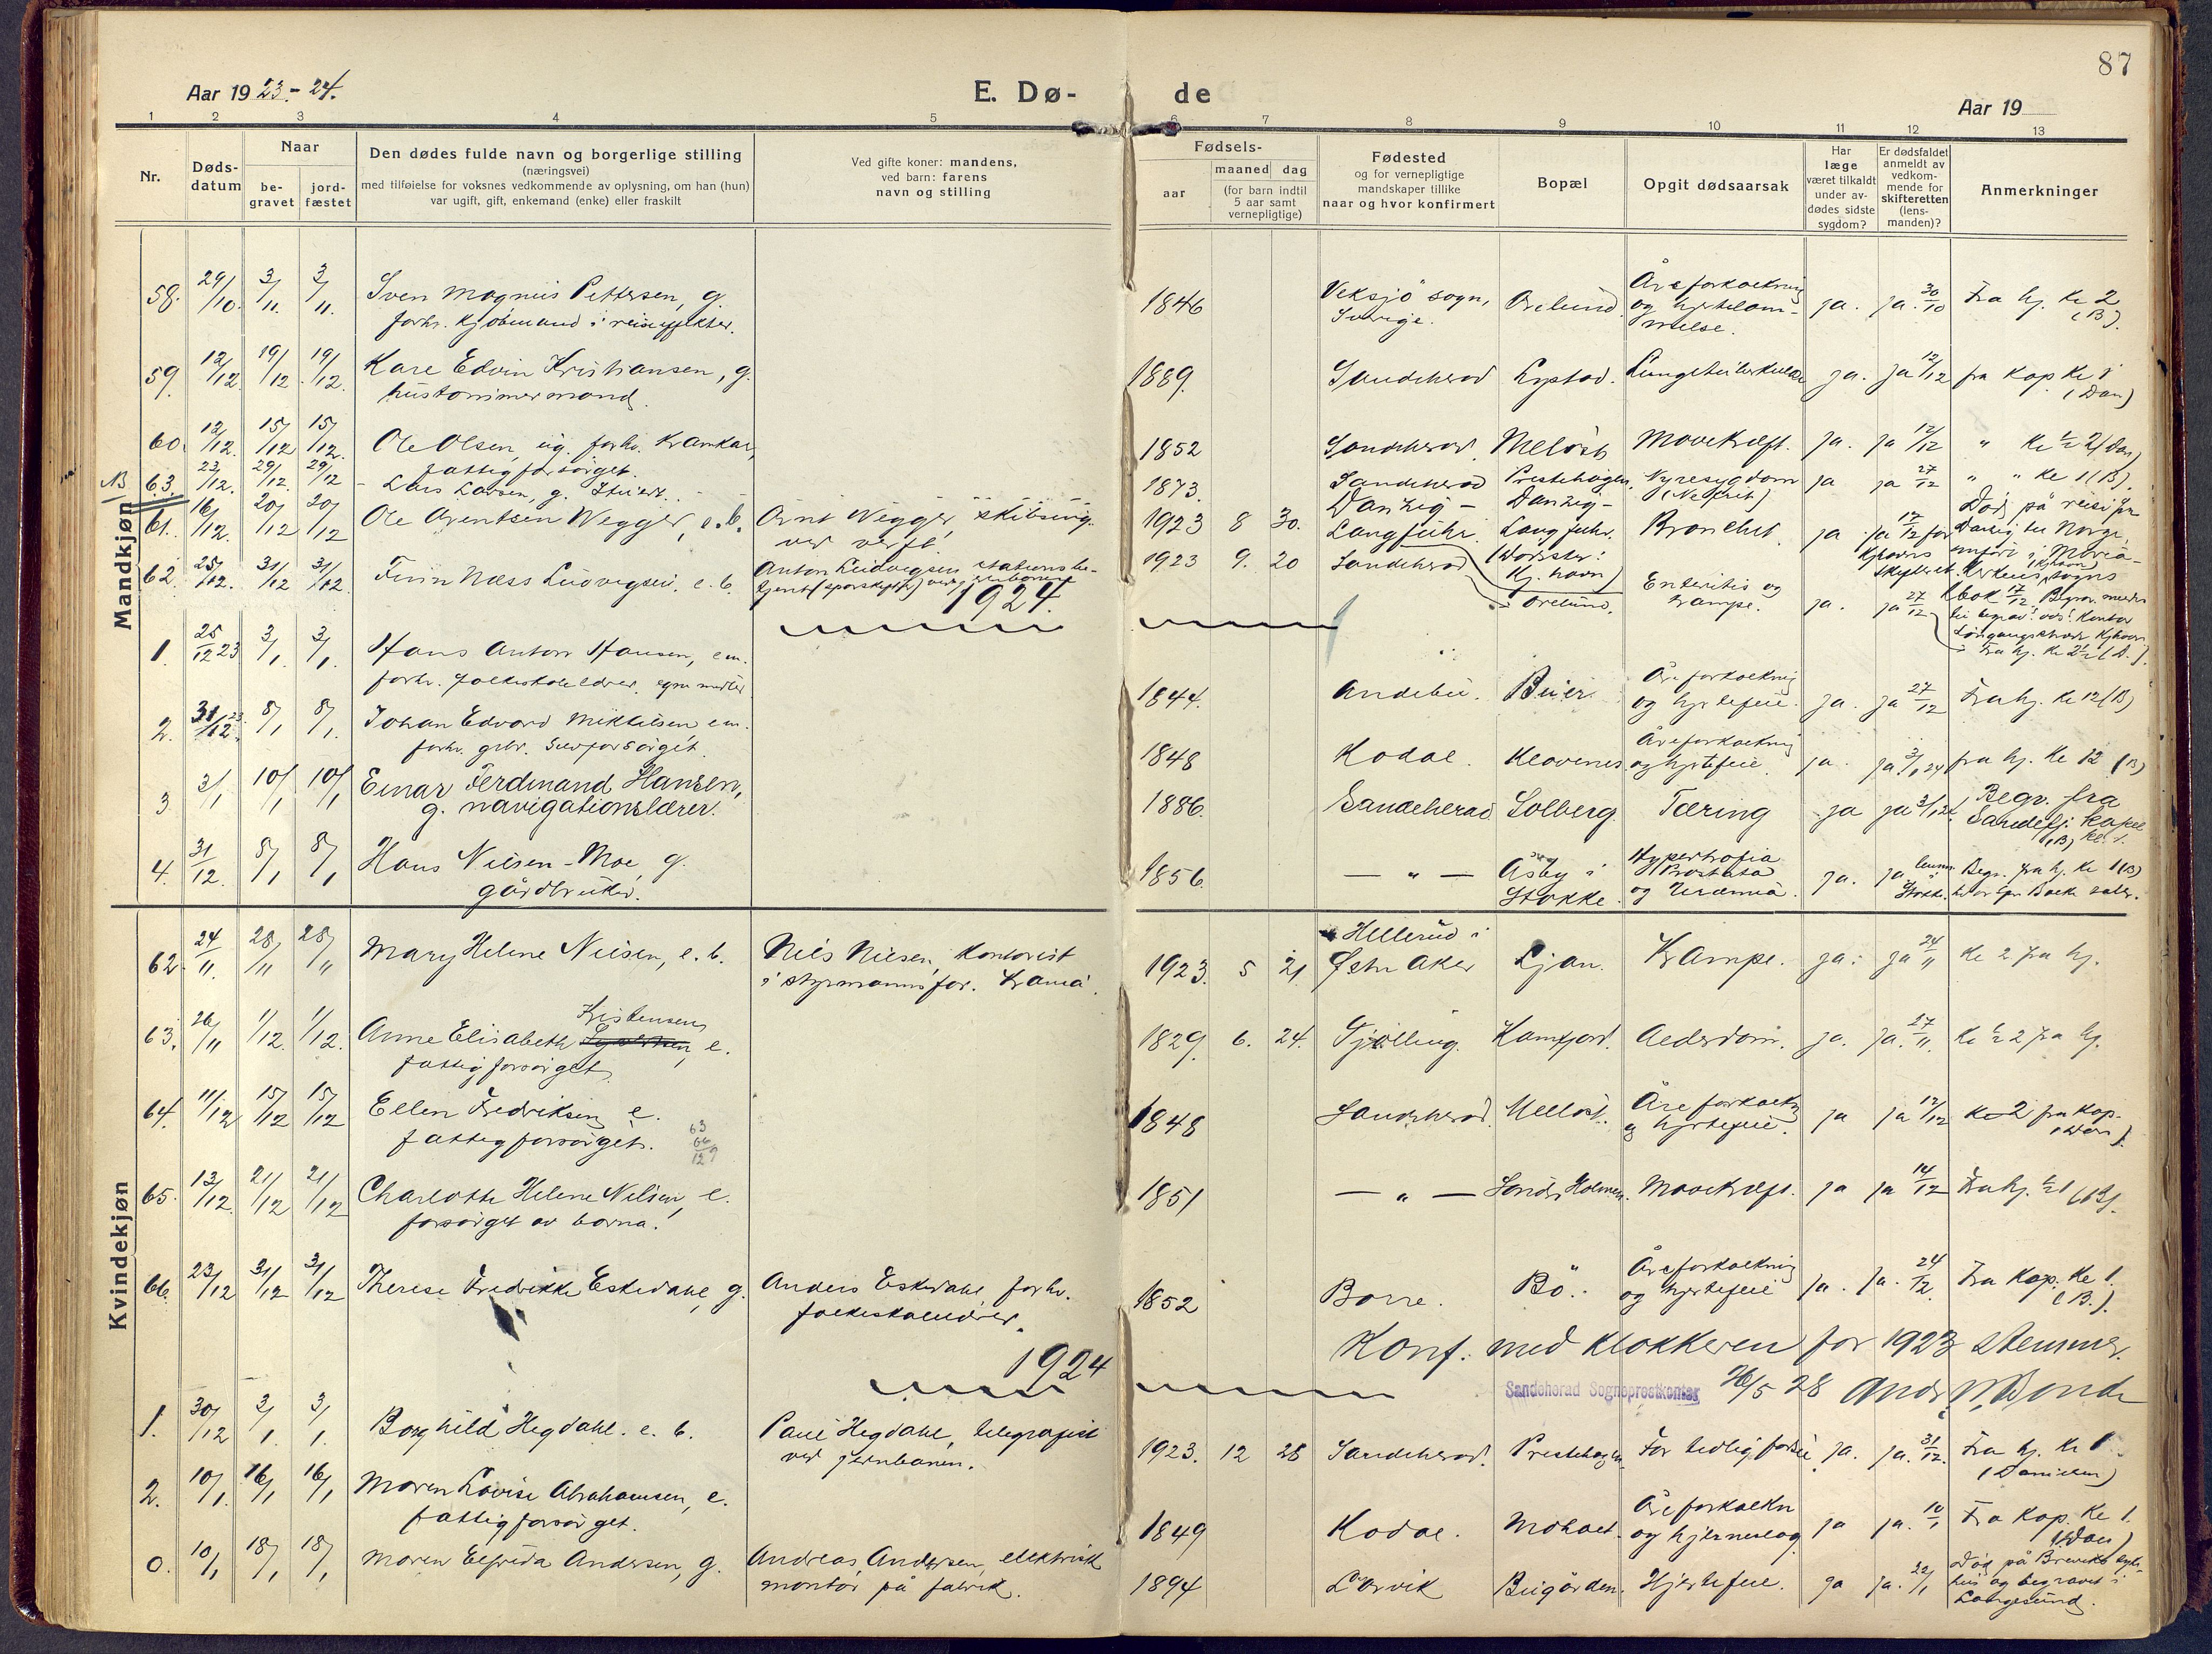 87
Aar 19 23.- 24.
E. Dø- de
Aar 19
1 2 3 4 5 6 7 8 9 10 11 12 13
Nr.
Døds-
datum
Naar
be-
gravet
jord-
fæstet
Den dødes fulde navn og borgerlige stilling
(næringsvei)
med tilføielse for voksnes vedkommende av oplysning, om han (hun)
var ugift, gift, enkemand (enke) eller fraskilt
Ved gifte koner: mandens,
ved barn: farens
navn og stilling
Fødsels-
aar
maaned dag
(for barn indtil
5 aar samt
vernepligtige)
Fødested
og for vernepligtige
mandskaper tillike
naar og hvor konfirmert
Bopæl
Opgit dødsaarsak
Har
læge
været tilkaldt
under av-
dødes sidste
sygdom?
Er dødsfaldet
anmeldt av
vedkom-
mende for
skifteretten
(lens-
manden)?
Anmerkninger
Mandkjøn
58. 29/10. 3/11. 3/11. Sven Magnus Pettersen, g.
forhv. kjøbmand i reiseeffekter.
1846 Veksjö sogn,
Sverige.
Orelund. Åreforkalkning
og hjertelam-
melse.
ja. ja. 30/10 Fra hj. kl 2
(B).
59. 12/12. 19/12 19/12. Kare Edvin Kristiansen, g.
hustømmermand.
1889. Sandeherad Lystad. Lungetuberkulose ja. ja 12/12 fra kap kl 1
(Dan)
60. 12/12. 15/12 15/12. Ole Olsen, ug. forhv. kramkar,
fattigforsörget.
1852 Sandeherad Meløst Mavekræft. ja. ja 12/12 " kl ½ 2 (Dan)
NB 63. 23/12. 29/12 29/12 Lars Larsen, g.
1873. Sandeherad Prestehagen. Nyresygdom
(Nefrit)
ja ja 27/12 " " kl 1 (B).
61. 16/12. 20/12 20/12 Ole Arentsen Wegger, e. b. Arnt Wegger, skibsing.
ved verft.
1923 8 30. Danzig -
Langfuhr.
Danzig -
Langfuhr.
Bronchit. ja ja 17/12 for
Kjhavns
skifteret.
Död på reise fra
Danzig til Norge,
62. 25/12. 31/12 31/12 Finn Næss Ludvigsen. e. b. Anton Ludvigsen stationsbe-
tjent (sporskifter) ved jernbanen
1923 9. 20 Sandeherad Orelund. Enteritis og
krampe.
ja. ja 27/12
Fra hj. kl 2½ (B.).
1924.
1. 25/12 23 3/1. 3/1. Hans Anton Hansen, em.
forhv. folkeskolelærer, egne midler
1844. Andebu. Buer. Åreforkalkning
og hjertefeil.
ja. ja 27/12 Fra hj. kl 12 (B)
2. 31/12 23. 8/1. 8/1. Johan Edvard Mikkelsen em.
forhv. gbr. Selvforsörget.
1848 Kodal. Klavenes Åreforkalkning
og hjertefeil.
ja. ja 3/1 24 fra hj. kl 12 (B)
3 3/1 10/1 10/1 Einar Ferdinand Hansen,
g. navigationslærer.
1886. Sandeherad Solberg. Tæring ja ja 3/1 24. Begr. fra
Sandefj. kapel
(B) kl. 1.
4. 31/12. 8/1 8/1 Hans Nilsen - Moe, g.
gårdbruker.
1856. — " — Åsby i
Stokke.
Hypertrofia
Prostata
og Uræmia.
ja. ja lensm. i
Stokke.
Begr. fra hj. kl 1 (B)
Kvindekjøn
62. 24/11. 28/11 28/11 Mary Helene Nilsen, e. b. Nils Nilsen, kontorist
i styrmannsfor.
1923. 5 21. Hellerud i
Østre Aker
Ljan. Krampe. ja. ja 24/11 Kl 2 fra hj.
63. 26/11 1/12. 1/12. Anne Elisabeth Kristensen, e.
fattigforsörget.
1829. 6. 24. Tjølling. Kamfjord. Alderdom. ja. ja. 27/11. Kl ½ 2 fra hj.
64. 11/12 15/12 15/12 Ellen Fredriksen e.
fattigforsörget.
63
66
129
1848 Sandeherad. Melløst. Åreforkalkn.
og hjertefeil.
ja ja 12/12 Kl 2 fra kap.
(Dan).
65. 13/12. 21/12 21/12 Charlotte Helene Nilsen, e.
forsörget av borna.
1851 — " — Söndr. Holmen. Mavekræft. ja ja 14/12 Fra hj. kl 1 (B).
66. 23/12 31/12 31/12 Therese Fredrikke Eskedahl, g. Anders Eskedahl forhv.
folkeskolelærer.
1852 Borre. Bö. Åreforkalkning
og hjertefeil
ja. ja. 24/12. Fra kap. kl 1.
(B.).
1924
Konf. med klokkeren for 1923 stemmer.
Sandeherad Sogneprestkontor 26/5 28 Andr. N. Bonde
1. 30/12 3/1. 3/1. Borghild Hegdahl. e. b. Paul Hegdahl, telegrafist
ved jernbanen.
1923. 12 28 Sandeherad. Prestehagen For tidlig födsel ja. ja. 31/12. Fra hj. kl 1
(Danielsen)
2. 10/1. 16/1 16/1 Maren Lovise Abrahamsen, e.
fattigforsörget.
1849 Kodal. Mohaet. Åreforkalkn
og hjerneslag
ja ja. 10/1 Fra kap. kl 1.
(Dan)
0. 10/1 18/1 18/1 Maren Elfrida Andersen, g. Andreas Andersen, elektrisk
montör på fabrik.
1894 Larvik Bugården. Hjertefeil. ja ja. 22/1 Död på Breviks syke-
hus og begravet i
Langesund.